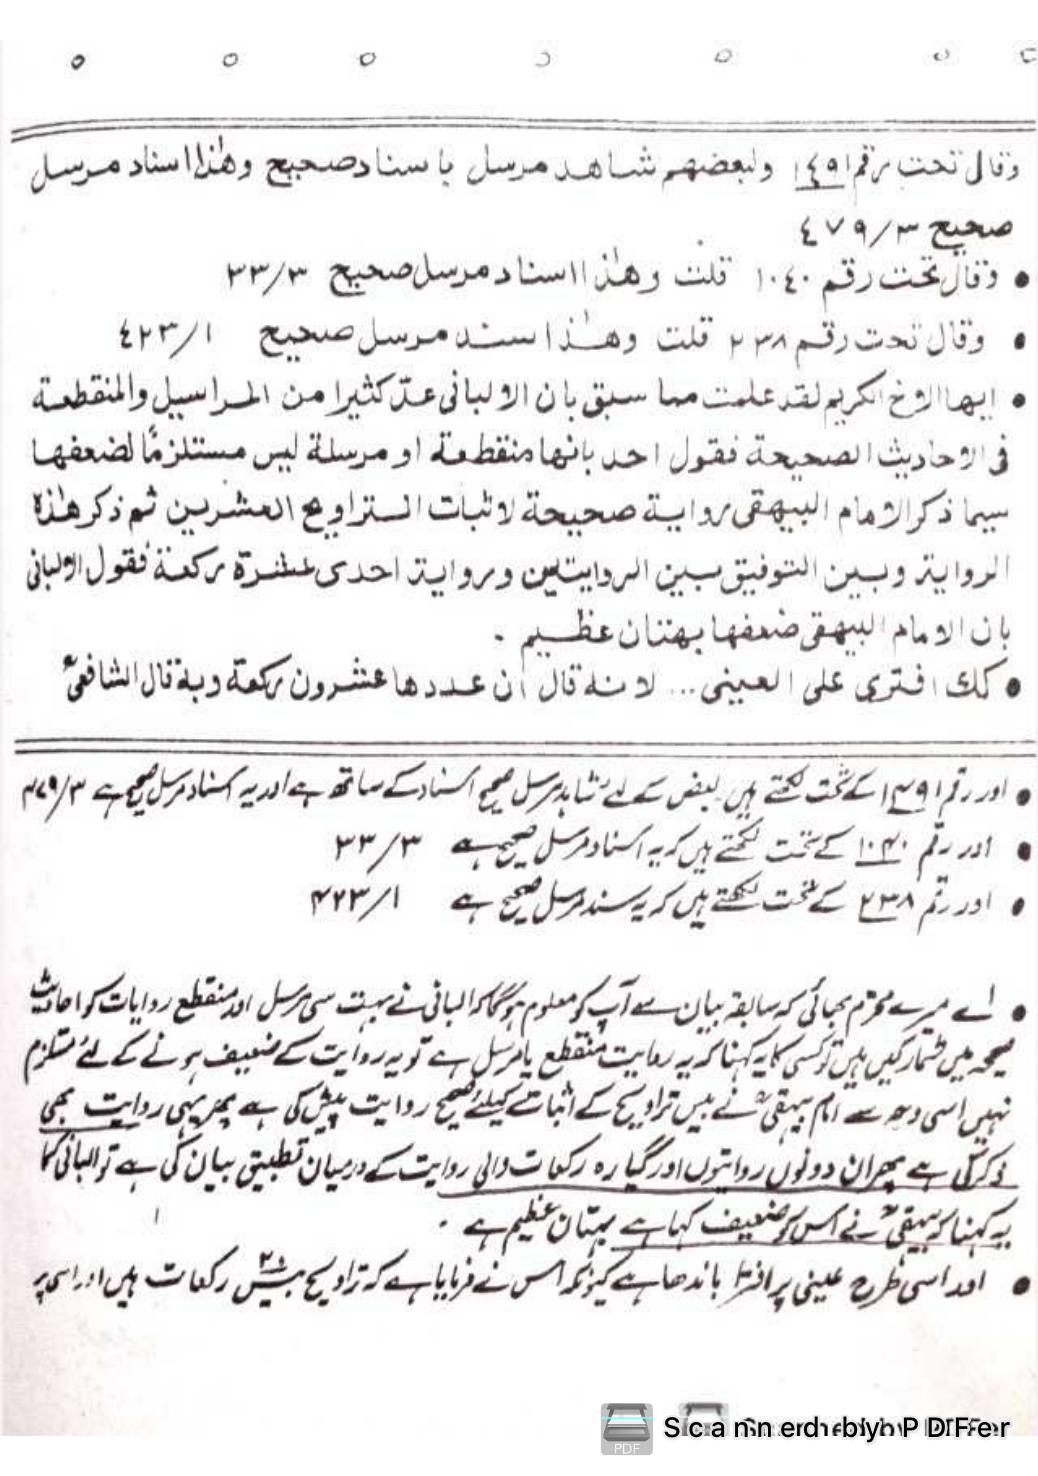 وقال تحت رقم ١٤٩١ ولبعضهم شاهد مرسل باسناد صحيح وهٰذا اسناد مرسل
صحيح ٣/٤٧٩
• وقال تحت رقم ١٠٤٠ قلت وهٰذا اسناد مرسل صحيح ٣/٣٣
• وقال تحت رقم ٢٣٨ قلت وهٰذا سند مرسل صحيح ١/٤٢٣
• ايها الاخ الكريم لقد علمت مما سبق بان الالبانى عدّ كثيرا من المراسيل والمنقطعة
فى الاحاديث الصحيحة فقول احد بانها منقطعة او مرسلة ليس مستلزمًا لضعفها
سيما ذكر الامام البيهقى رواية صحيحة لاثبات التراويح العشرين ثم ذكر هٰذه
الرواية وبين التوفيق بين الروايتين ورواية احدى عشرة ركعة فقول الالبانى
بان الامام البيهقى ضعفها بهتان عظيم .
• كك افترى على العينى ... لانه قال ان عددها عشرون ركعة وبه قال الشافعىؒ
• اور رقم ١٤٩١ کے تحت لکھتے ہیں بعض کے لئے شاہد مرسل صحیح اسناد کے ساتھ ہے اور یہ اسناد مرسل صحیح ہے ۳/۴۷۹
• اور رقم ۱۰۴۰ کے تحت لکھتے ہیں کہ یہ اسناد مرسل صحیح ہے ۳/۳۳
• اور رقم ۲۳۸ کے تحت لکھتے ہیں کہ یہ سند مرسل صحیح ہے ۱/۴۲۳
• اے میرے محترم بھائی کہ سابقہ بیان سے آپ کو معلوم ہوگا کہ البانی نے بہت سی مرسل اور منقطع روایات کو احادیث
صحیحہ میں شمار کیں ہیں تو کسی کا یہ کہنا کہ یہ روایت منقطع یا مرسل ہے تو یہ روایت کے ضعیف ہونے کے لئے مستلزم
نہیں اسی وجہ سے امام بیہقیؒ نے بیس تراویح کے اثبات کیلئے صحیح روایت پیش کی ہے پھر یہی روایت بھی
ذکر کی ہے پھر ان دونوں روایتوں اور گیارہ رکعات والی روایت کے درمیان تطبیق بیان کی ہے تو البانی کا
یہ کہنا کہ بیہقیؒ نے اس کو ضعیف کہا ہے بہتان عظیم ہے .
• اور اسی طرح عینی پر افترا باندھا ہے کیونکہ اس نے فرمایا ہے کہ تراویح بیس ۲۰ رکعات ہیں اور اسی پر
Scanned by PDFer